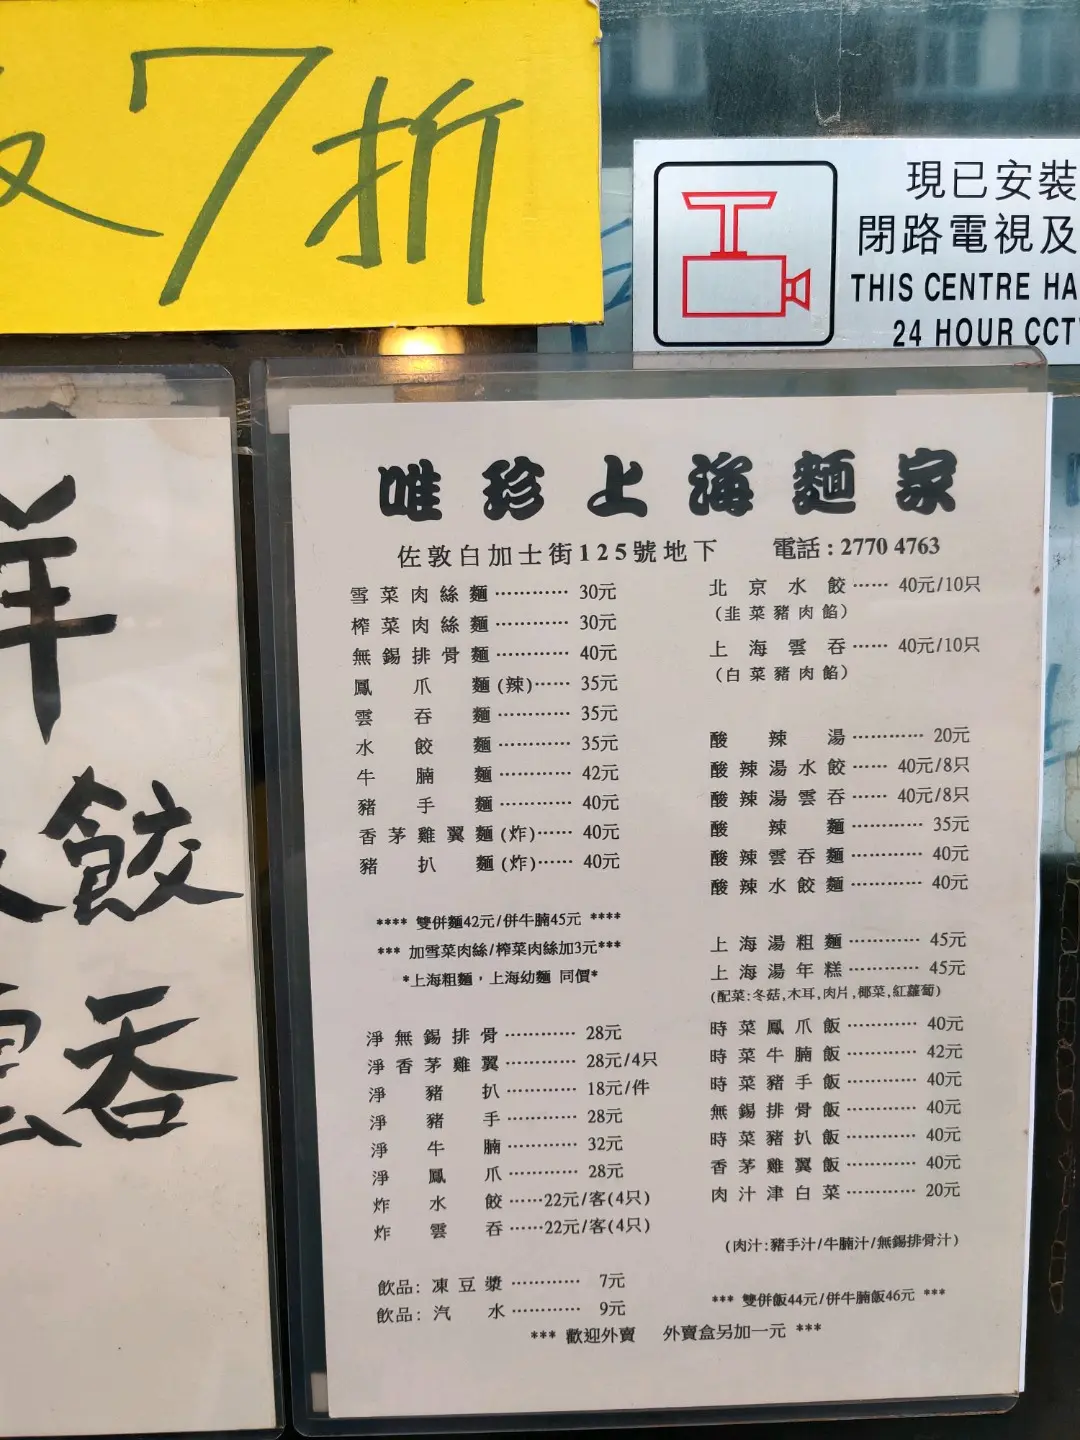 7折
現已安裝
閉路電視及
THIS CENTRE HA
24 HOUR CCT
餃
吞
唯珍上海麵家
佐敦白加士街125號地下 電話:2770 4763
雪菜肉絲麵 ………… 30元
榨菜肉絲麵 ………… 30元
無錫排骨麵 ………… 40元
鳳爪麵(辣)…… 35元
雲吞麵 ………… 35元
水餃麵 ………… 35元
牛腩麵 ………… 42元
豬手麵 ………… 40元
香茅雞翼麵(炸)…… 40元
豬扒麵(炸)…… 40元
**** 雙併麵42元/併牛腩45元 ****
*** 加雪菜肉絲/榨菜肉絲加3元***
*上海粗麵，上海幼麵 同價*
淨無錫排骨 ………… 28元
淨香茅雞翼 ………… 28元/4只
淨豬扒 ………… 18元/件
淨豬手 ………… 28元
淨牛腩 ………… 32元
淨鳳爪 ………… 28元
炸水餃 ……22元/客(4只)
炸雲吞 ……22元/客(4只)
飲品: 凍豆漿 ………… 7元
飲品: 汽水 ………… 9元
北京水餃 …… 40元/10只
(韭菜豬肉餡)
上海雲吞 …… 40元/10只
(白菜豬肉餡)
酸辣湯 ………… 20元
酸辣湯水餃 …… 40元/8只
酸辣湯雲吞 …… 40元/8只
酸辣麵 ………… 35元
酸辣雲吞麵 ………… 40元
酸辣水餃麵 ………… 40元
上海湯粗麵 ………… 45元
上海湯年糕 ………… 45元
(配菜:冬菇,木耳,肉片,椰菜,紅蘿蔔)
時菜鳳爪飯 ………… 40元
時菜牛腩飯 ………… 42元
時菜豬手飯 ………… 40元
無錫排骨飯 ………… 40元
時菜豬扒飯 ………… 40元
香茅雞翼飯 ………… 40元
肉汁津白菜 ………… 20元
(肉汁:豬手汁/牛腩汁/無錫排骨汁)
*** 雙併飯44元/併牛腩飯46元 ***
*** 歡迎外賣 外賣盒另加一元 ***